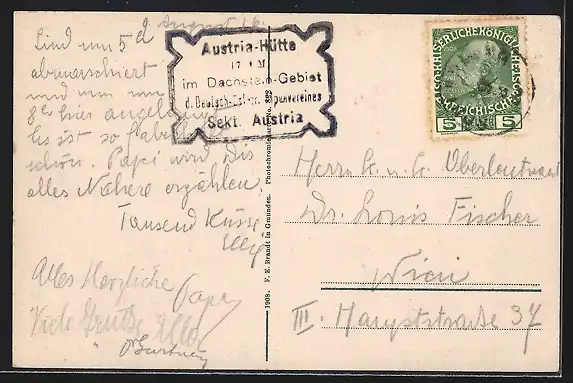 2 August
Sind um 5h
abmarschiert
und nun um
hier angelangt
Es ist so fabelhaft
schön. Papi wird Dir
alles Nähere erzählen.
Tausend Küsse
Alles Herzliche Papa
Viele Grüße
Austria-Hütte
im Dachstein-Gebiet
d. Deutsch-Österr. Alpenvereines
Sekt. Austria
1908. F. E. Brandt in Gmunden. Photochromiekarte No. 892
KAISERLICHE KÖNIGLICHE
ÖSTERREICHISCHE POST
5 5
Herrn k. u. k. Oberleutnant
Dr. Louis Fischer
Wien
III. Hauptstraße 37